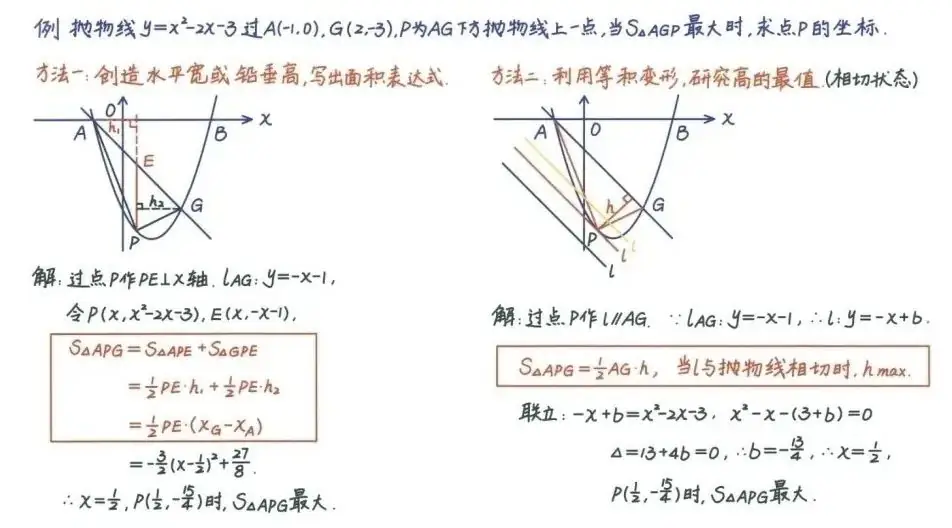 例 抛物线y=x²-2x-3过A(-1,0),G(2,-3),P为AG下方抛物线上一点,当S△AGP最大时,求点P的坐标.
方法一:创造水平宽或铅垂高,写出面积表达式.
O
A
h₁
B
x
E
h₂
G
P
解:过点P作PE⊥x轴. lAG:y=-x-1,
令P(x,x²-2x-3),E(x,-x-1),
S△APG=S△APE+S△GPE
=½PE·h₁+½PE·h₂
=½PE·(xG-xA)
=-3/2(x-½)²+27/8.
∴x=½,P(½,-15/4)时,S△APG最大.
方法二:利用等积变形,研究高的最值.(相切状态)
A
O
B
x
h
G
P
l
l
l
解:过点P作l∥AG. ∵lAG:y=-x-1,∴l:y=-x+b.
S△APG=½AG·h, 当l与抛物线相切时,h max.
联立:-x+b=x²-2x-3, x²-x-(3+b)=0
△=13+4b=0,∴b=-13/4,∴x=½,
P(½,-15/4)时,S△APG最大.